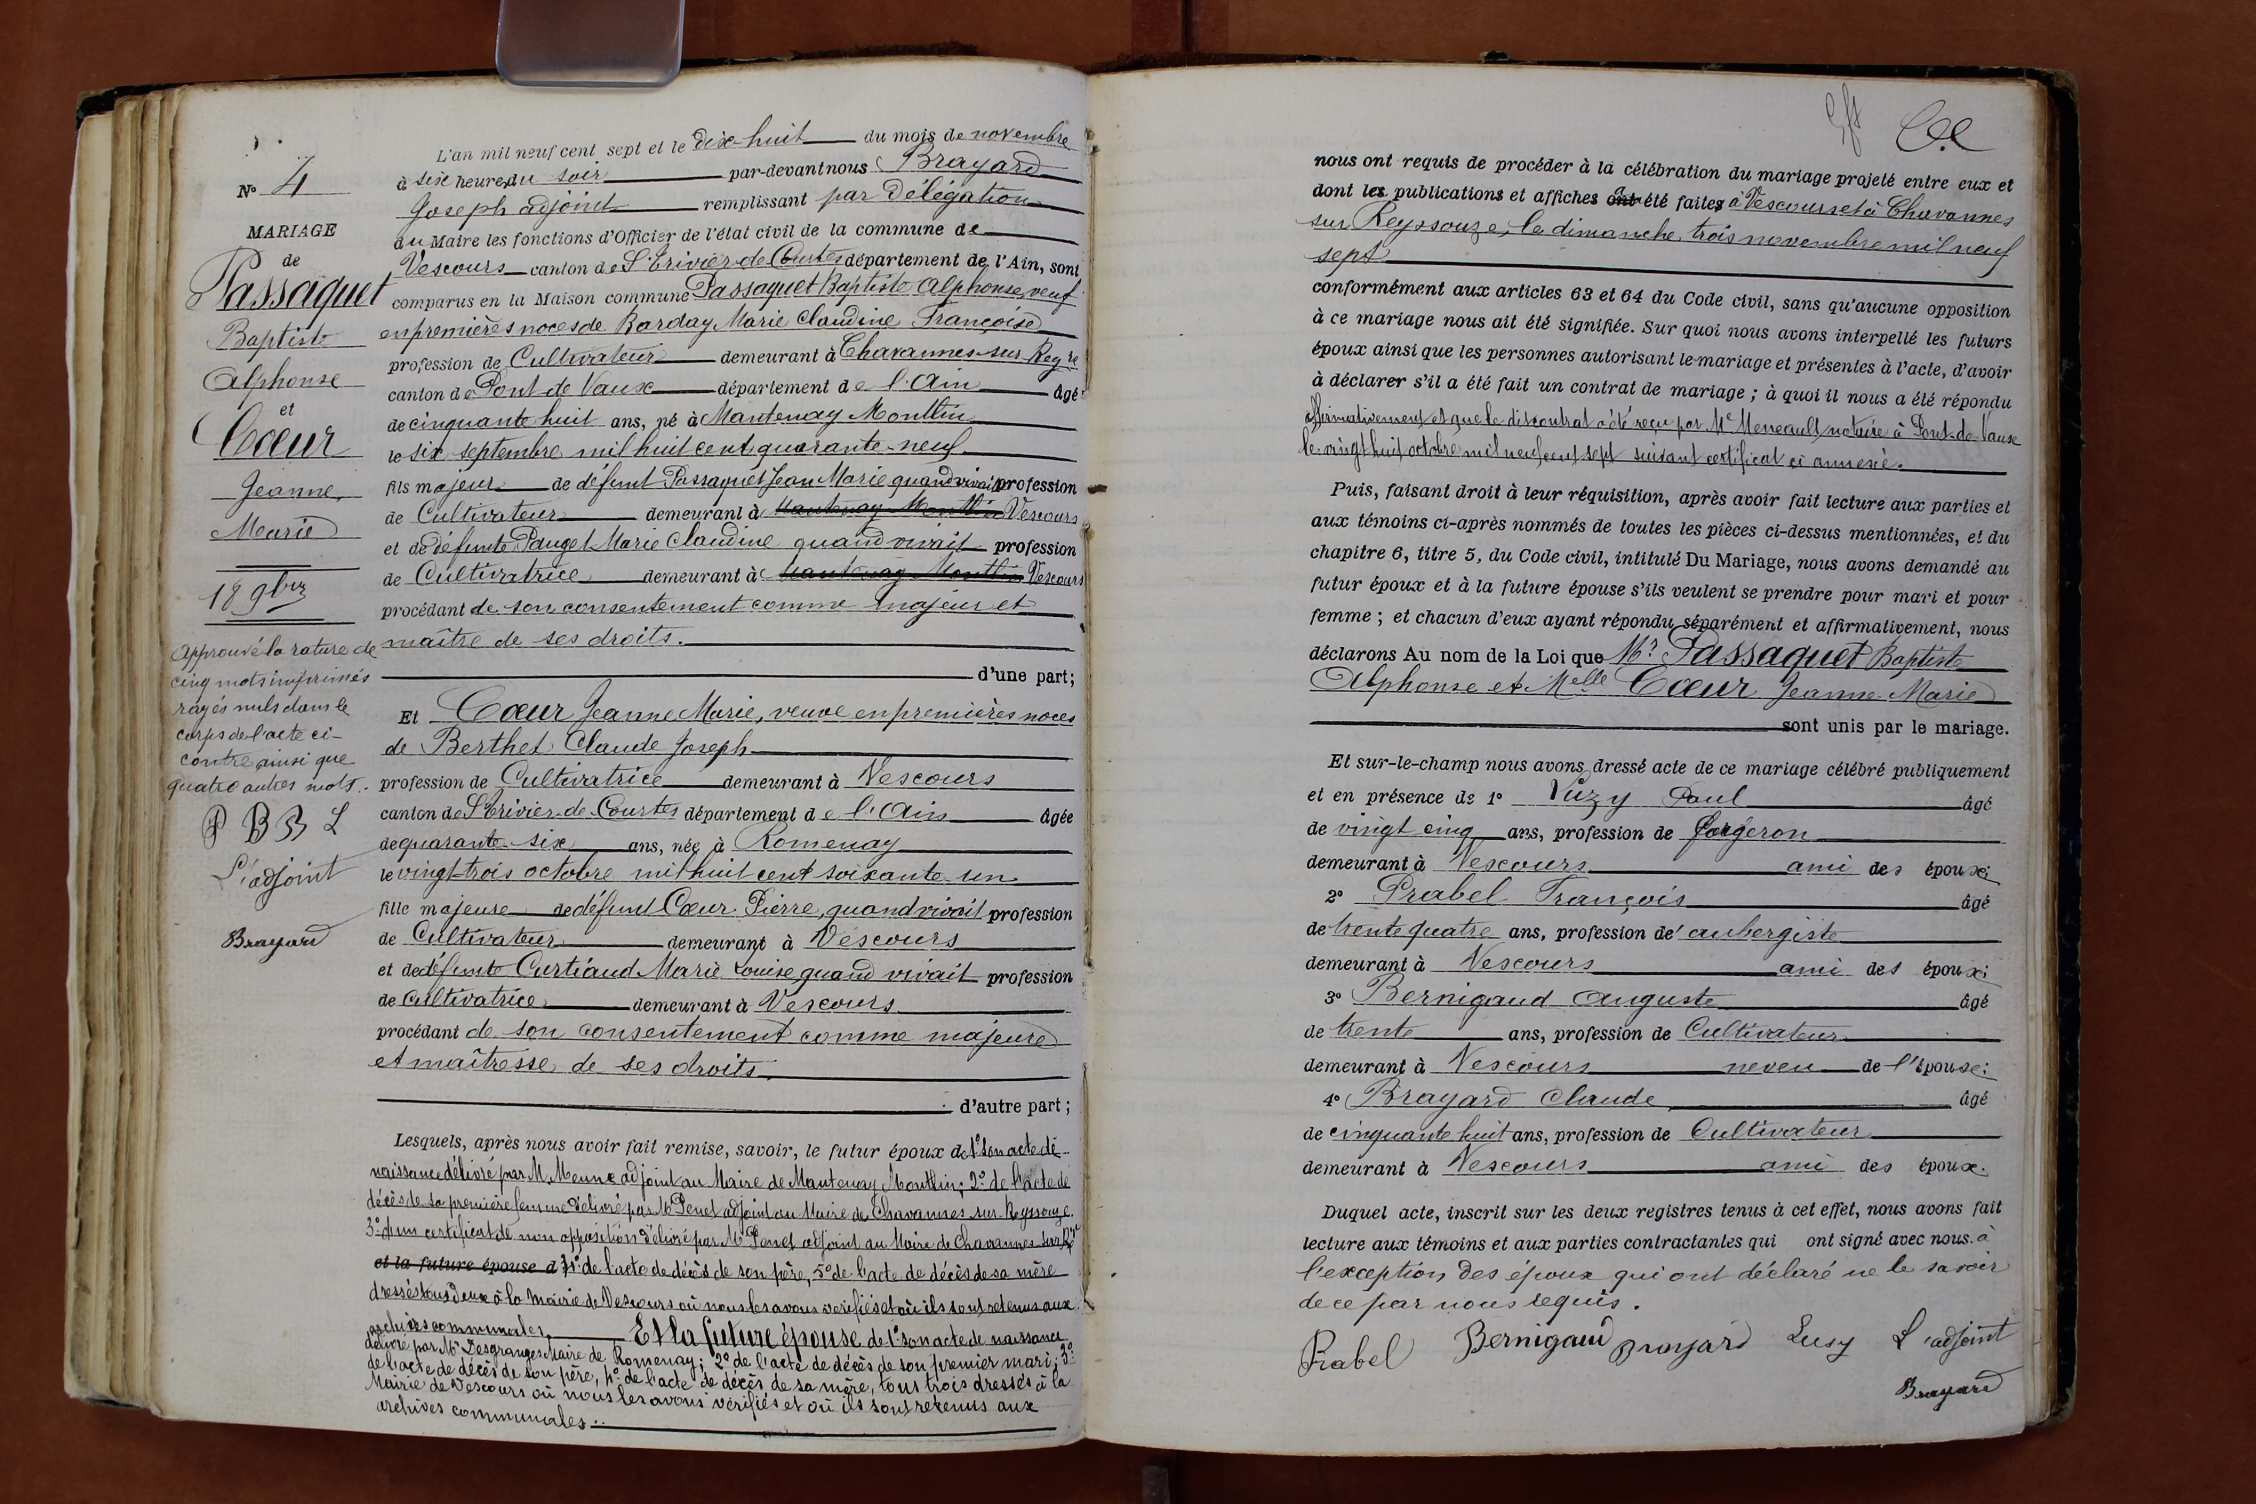 N° 4
MARIAGE
de
Passaquet
Baptiste
Alphonse
et
Cœur
Jeanne
Marie
18 9bre
Approuvé la rature de
cinq mots imprimés
rayés nuls dans le
corps de l'acte ci-
contre ainsi que
quatre autres mots.
P B B L
L'adjoint
Brayard
L'an mil neuf cent sept et le dix-huit du mois de novembre
à six heures du soir par-devant nous Brayard
Joseph adjoint remplissant par délégation
du Maire les fonctions d'Officier de l'état civil de la commune de
Vescours canton de St Trivier-de-Courtes département de l'Ain, sont
comparus en la Maison commune Passaquet Baptiste Alphonse, veuf
en premières noces de Barday Marie Claudine Françoise
profession de Cultivateur demeurant à Chavannes-sur-Reyze
canton de Pont de Vaux département de l'Ain âgé
de cinquante huit ans, né à Mantenay Montlin
le six septembre mil huit cent quarante-neuf
fils majeur de défunt Passaquet Jean Marie quand vivait profession
de Cultivateur demeurant à Mantenay Montlin Vescours
et de défunte Pauget Marie Claudine quand vivait profession
de Cultivatrice demeurant à Mantenay Montlin Vescours
procédant de son consentement comme majeur et
maître de ses droits.
d'une part;
Et Cœur Jeanne Marie, veuve en premières noces
de Berthet Claude Joseph
profession de Cultivatrice demeurant à Vescours
canton de St Trivier-de-Courtes département de l'Ain âgée
de quarante-six ans, née à Romenay
le vingt-trois octobre mil huit cent soixante-un
fille majeure de défunt Cœur Pierre, quand vivait profession
de Cultivateur demeurant à Vescours
et de défunte Curtiaud Marie Louise quand vivait profession
de Cultivatrice demeurant à Vescours
procédant de son consentement comme majeure
et maîtresse de ses droits.
d'autre part;
Lesquels, après nous avoir fait remise, savoir, le futur époux de 1° son acte de
naissance délivré par M. Meunc adjoint au Maire de Mantenay Montlin; 2° de l'acte de
décès de sa première femme délivré par Mr Penet adjoint au Maire de Chavannes-sur-Reyssouze
3° d'un certificat de non opposition délivré par Mr Penet adjoint au Maire de Chavannes sur Rze
et la future épouse d 4° de l'acte de décès de son père, 5° de l'acte de décès de sa mère
dressés tous deux à la mairie de Vescours où nous les avons vérifiés et où ils sont retenus aux
archives communales. Et la future épouse de 1° son acte de naissance
délivré par Mr Desgranges Maire de Romenay; 2° de l'acte de décès de son premier mari; 3°
de l'acte de décès de son père, 4° de l'acte de décès de sa mère, tous trois dressés à la
Mairie de Vescours où nous les avons vérifiés et où ils sont retenus aux
archives communales.
nous ont requis de procéder à la célébration du mariage projeté entre eux et
dont les publications et affiches ont été faites à Vescours et à Chavannes
sur Reyssouze, le dimanche trois novembre mil neuf
sept
conformément aux articles 63 et 64 du Code civil, sans qu'aucune opposition
à ce mariage nous ait été signifiée. Sur quoi nous avons interpellé les futurs
époux ainsi que les personnes autorisant le mariage et présentes à l'acte, d'avoir
à déclarer s'il a été fait un contrat de mariage; à quoi il nous a été répondu
affirmativement et que le dit contrat a été reçu par Me Meneault, notaire à Pont-de-Vaux
le vingt huit octobre mil neuf cent sept suivant certificat ci annexé.
Puis, faisant droit à leur réquisition, après avoir fait lecture aux parties et
aux témoins ci-après nommés de toutes les pièces ci-dessus mentionnées, et du
chapitre 6, titre 5, du Code civil, intitulé Du Mariage, nous avons demandé au
futur époux et à la future épouse s'ils veulent se prendre pour mari et pour
femme; et chacun d'eux ayant répondu séparément et affirmativement, nous
déclarons Au nom de la Loi que Mr Passaquet Baptiste
Alphonse et Melle Cœur Jeanne Marie
sont unis par le mariage.
Et sur-le-champ nous avons dressé acte de ce mariage célébré publiquement
et en présence de 1° Vuzy Paul âgé
de vingt cinq ans, profession de forgeron
demeurant à Vescours ami des époux;
2° Prabel François âgé
de trente quatre ans, profession d'aubergiste
demeurant à Vescours ami des époux;
3° Bernigaud Auguste âgé
de trente ans, profession de Cultivateur
demeurant à Vescours neveu de l'épouse;
4° Brayard Claude âgé
de cinquante huit ans, profession de Cultivateur
demeurant à Vescours ami des époux.
Duquel acte, inscrit sur les deux registres tenus à cet effet, nous avons fait
lecture aux témoins et aux parties contractantes qui ont signé avec nous à
l'exception des époux qui ont déclaré ne le savoir
de ce par nous requis.
Prabel Bernigaud Brayard L'adjoint
Brayard